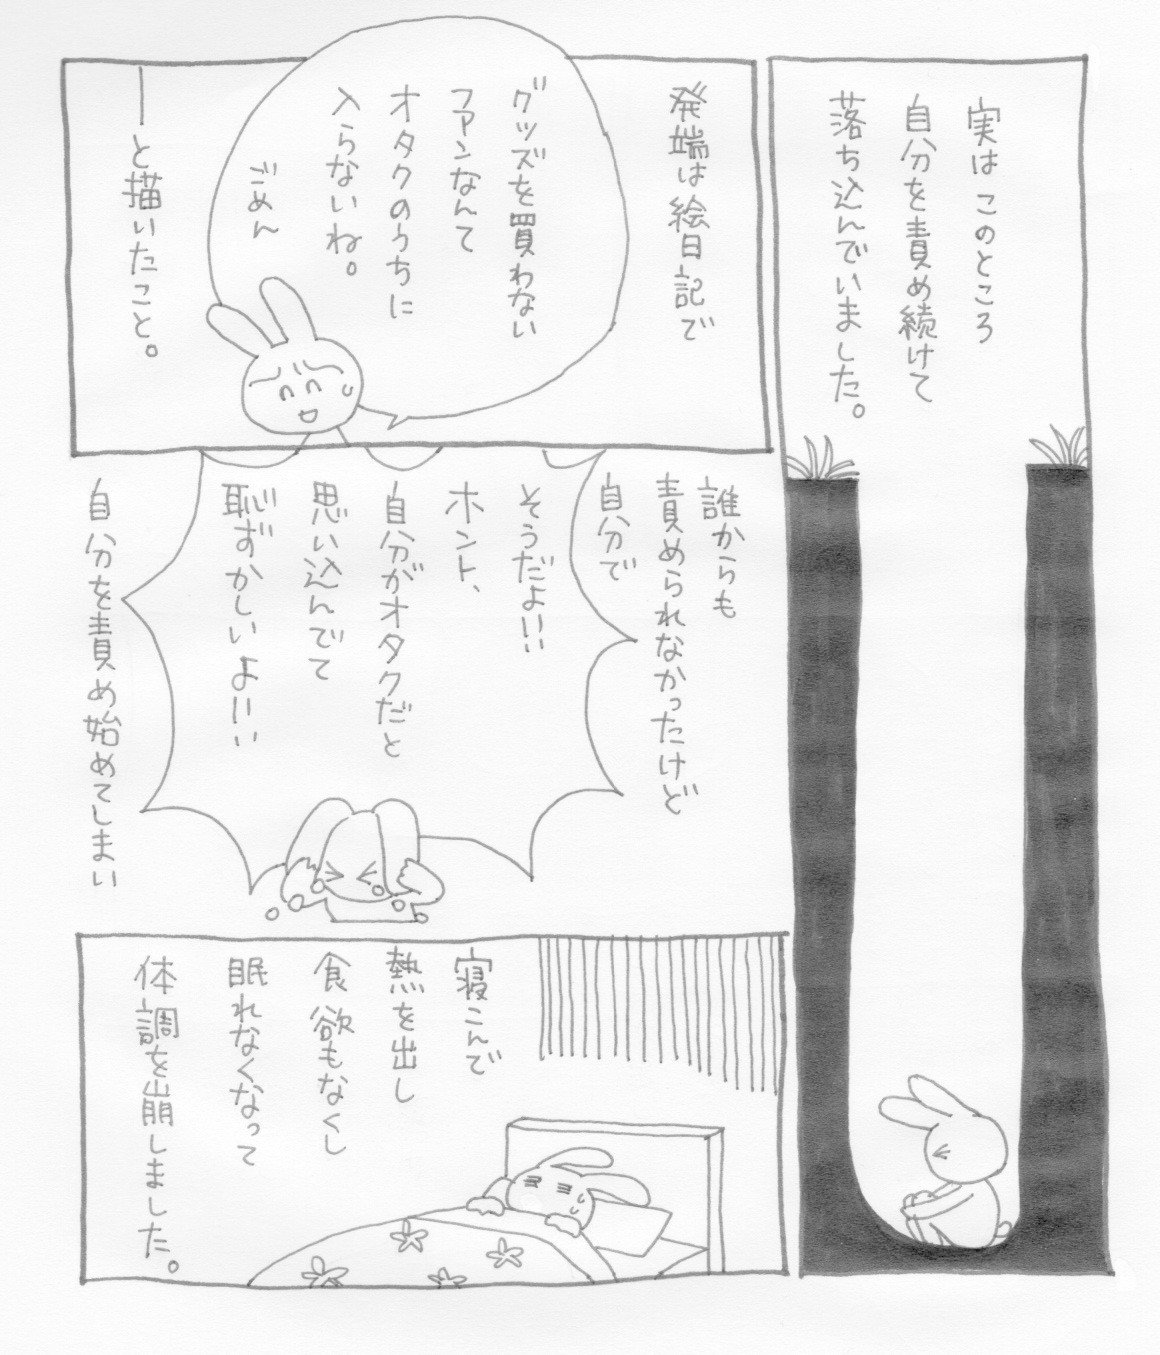 実は このところ
自分を責め続けて
落ち込んでいました。
発端は絵日記で
グッズを買わない
ファンなんて
オタクのうちに
入らないね。
ごめん
──と描いたこと。
誰からも
責められなかったけど
自分で
そうだよ!!
ホント、
自分がオタクだと
思い込んでて
恥ずかしいよ!!い
自分を責め始めてしまい
寝こんで
熱を出し
食欲もなくし
眠れなくなって
体調を崩しました。